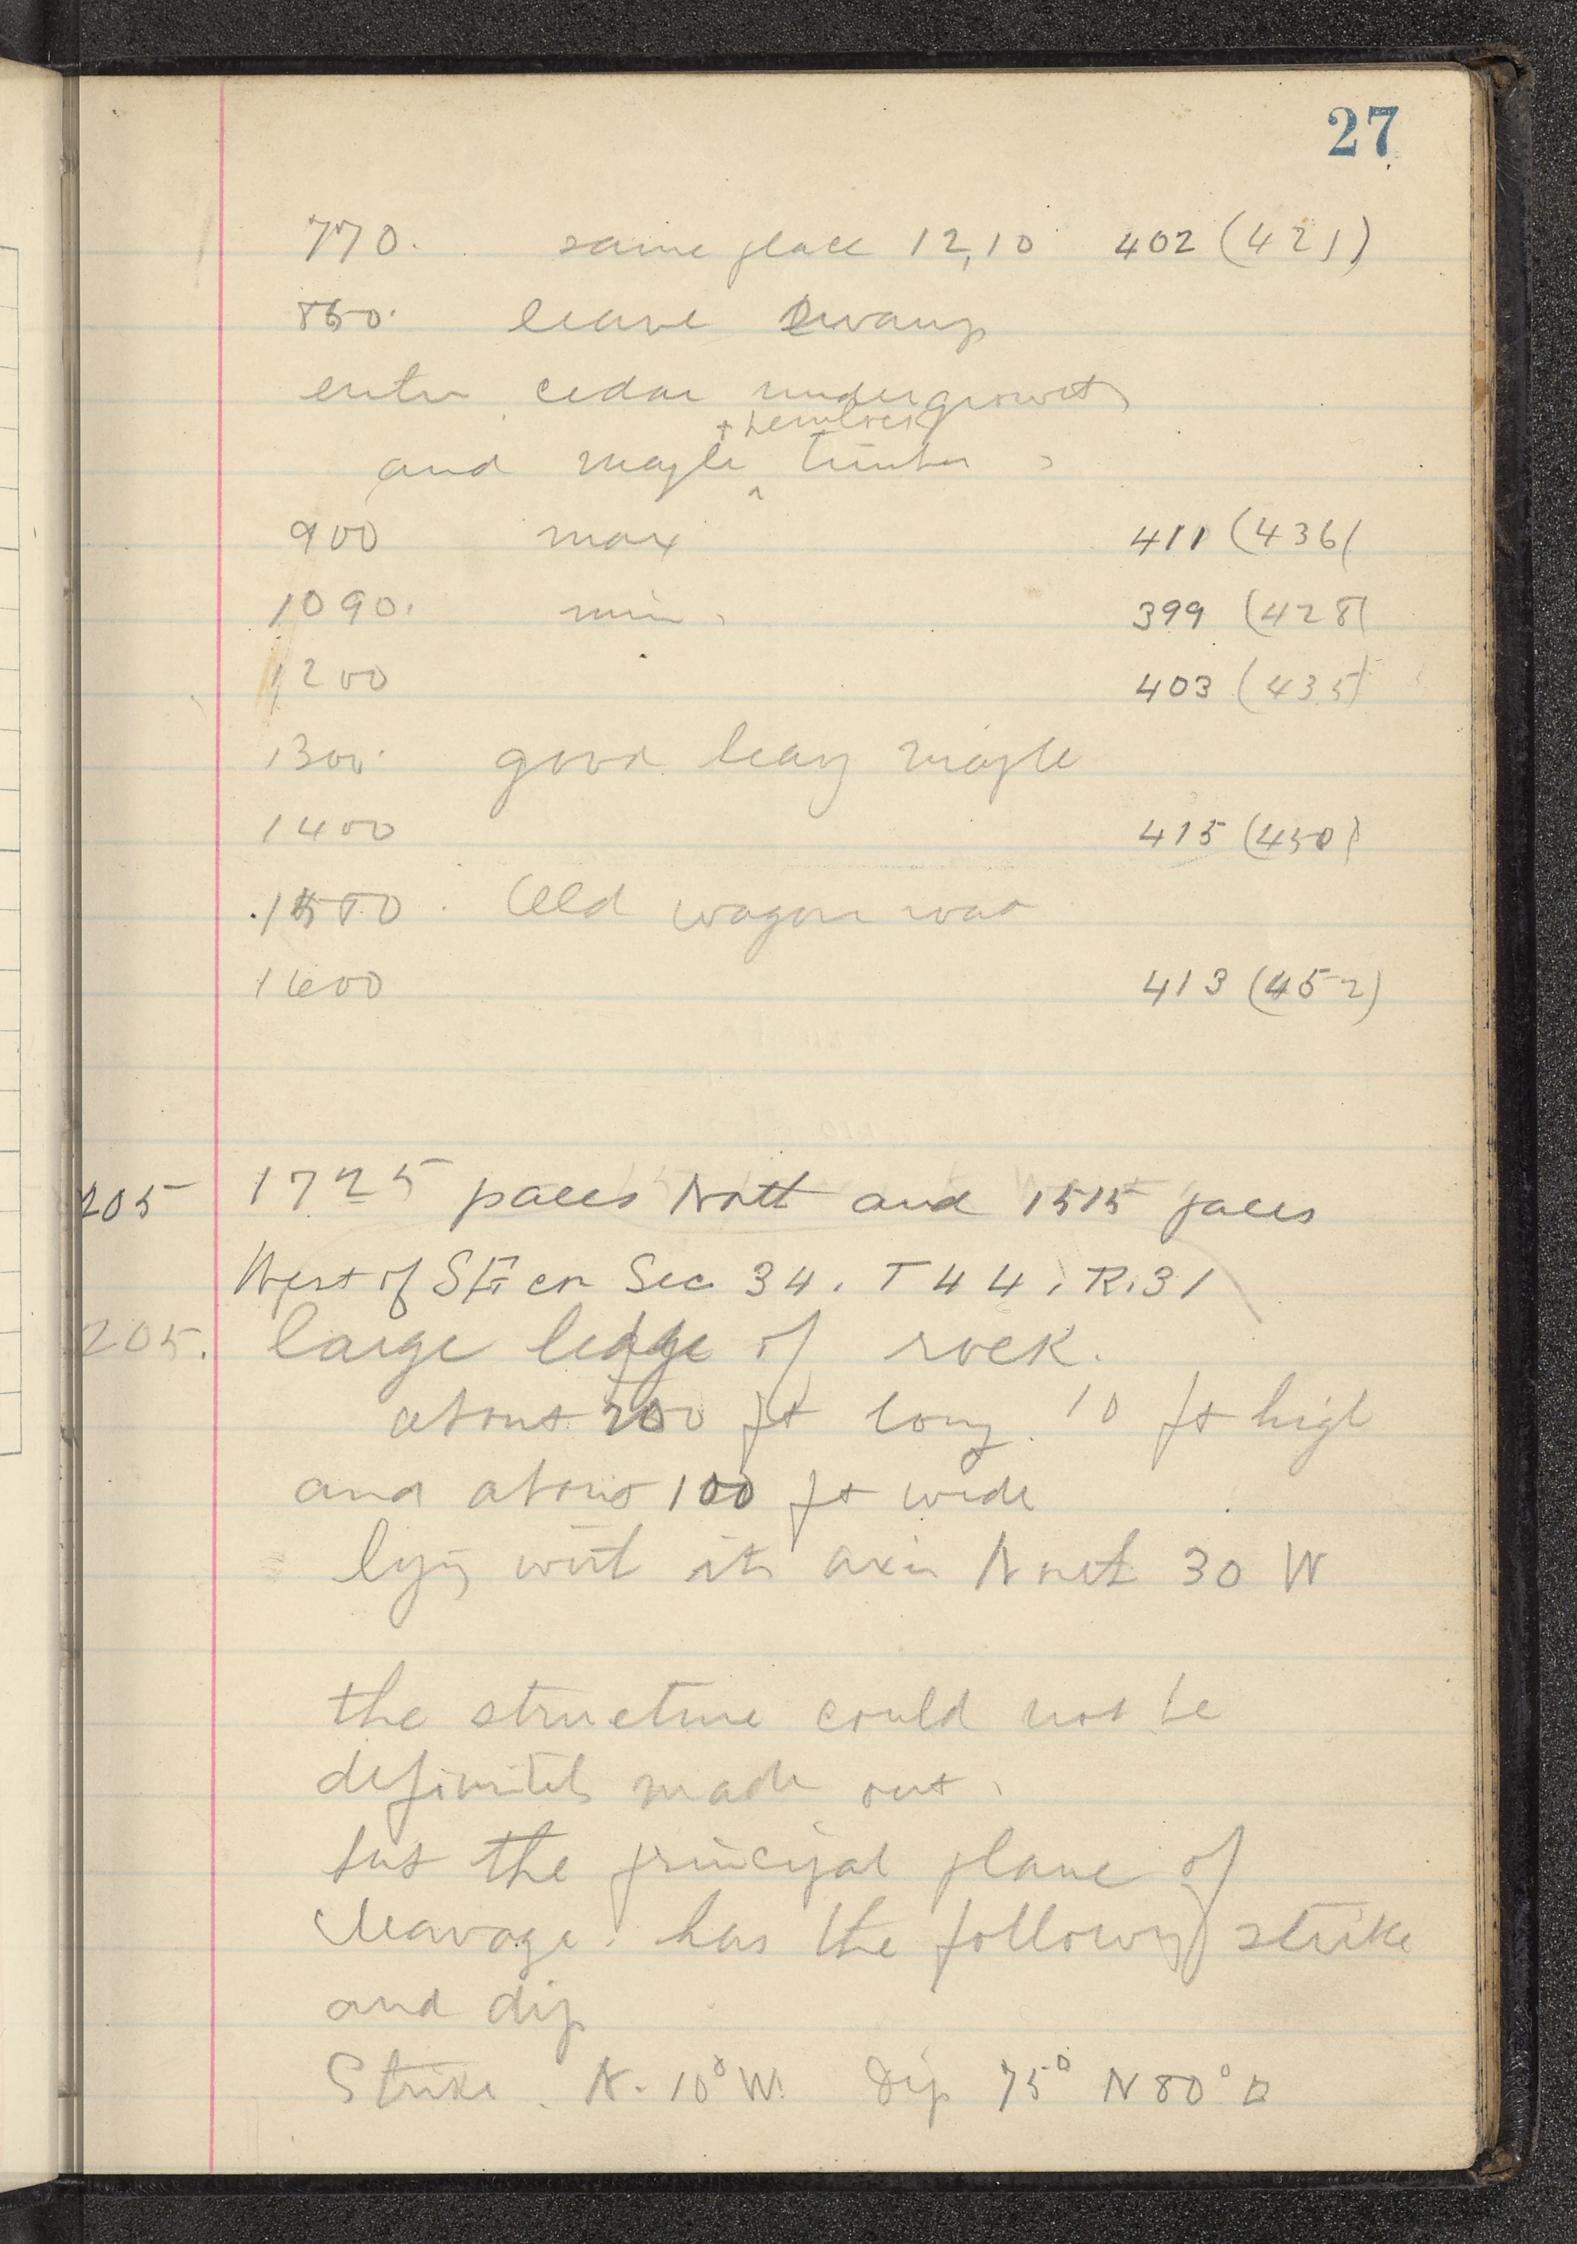 27
770. same place 12,10 402 (421)
850. leave swamp
enter cedar undergrowth
+ hemlock
and maple ^ timber
900 max 411 (436)
1090. min. 399 (428)
1200 403 (435)
1300. good heavy maple
1400 415 (450)
1550. Old wagon road
1600 413 (452)
205 1725 paces North and 1515 paces
West of SE cor Sec 34. T 44, R. 31
205. large ledge of rock.
about 200 ft long. 10 ft high
and about 100 ft wide
lying with its axis North 30 W
the structure could not be
definitely made out.
but the principal plane of
cleavage has the following strike
and dip
Strike. N. 10° W. Dip 75° N 80° E